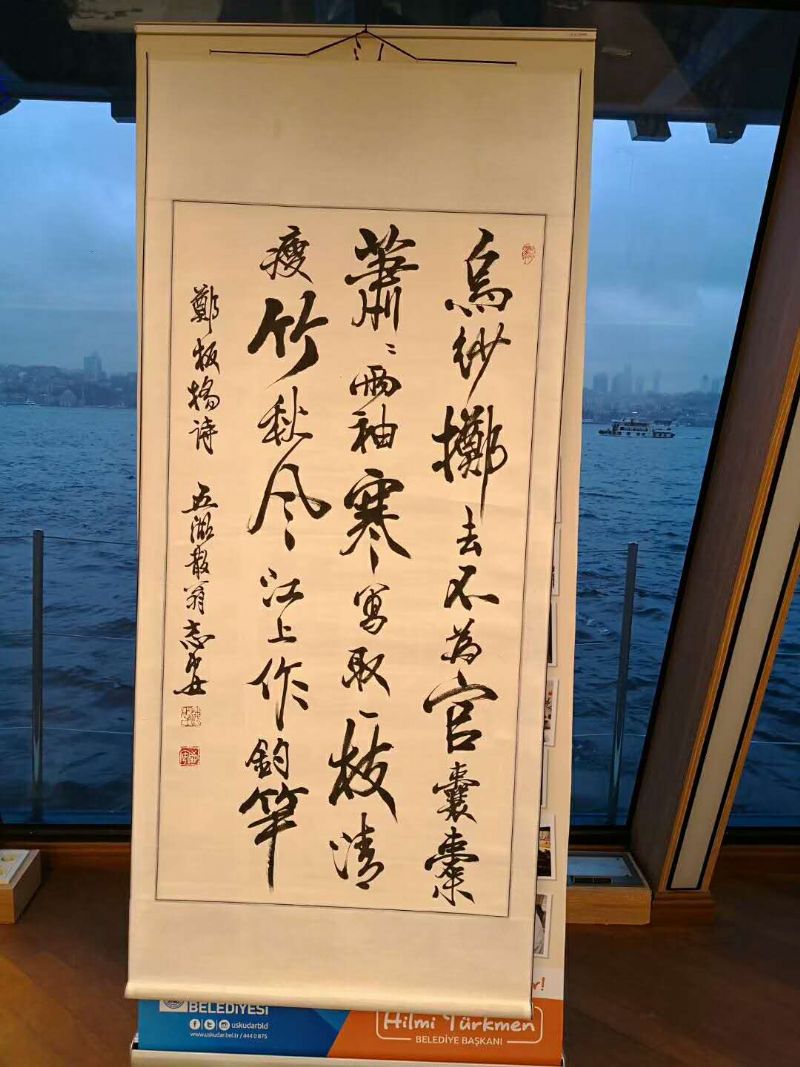 烏紗擲去不為官囊橐
蕭〻兩袖寒寫取一枝清
瘦竹秋风江上作釣竿
鄭板橋诗 五湖散翁志
BELEDİYESİ
uskudarbld
www.uskudar.bel.tr / 444 0 875
Hilmi Türkmen
BELEDİYE BAŞKANI